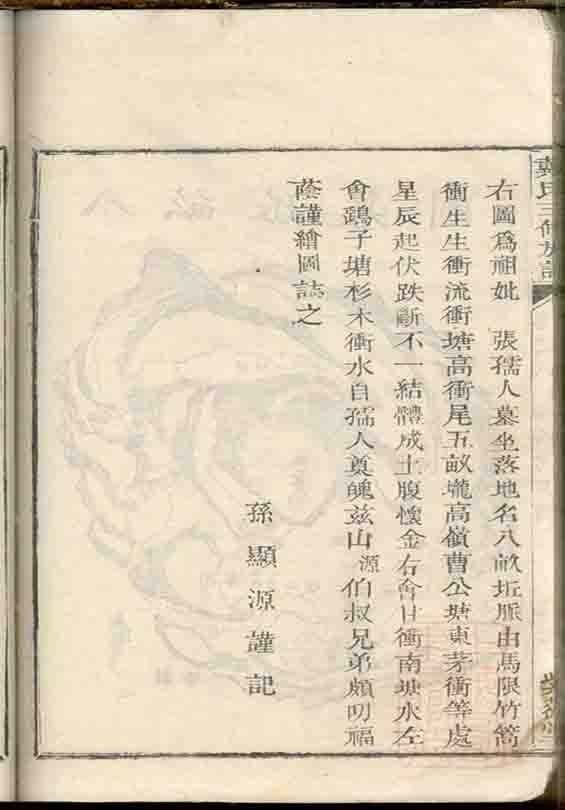 右圖爲祖妣　張孺人墓坐落地名八畝坵脈由馬限竹篙
衝生生衝流衝塘高衝尾五畝壠高嶺曹公塘東茅衝等處
星辰起伏跌斷不一結體成土腹懷金右會甘衝南塘水左
會鵶子塘杉木衝水自孺人奠魄茲山源伯叔兄弟頗叨福
蔭謹繪圖誌之
孫顯源謹記